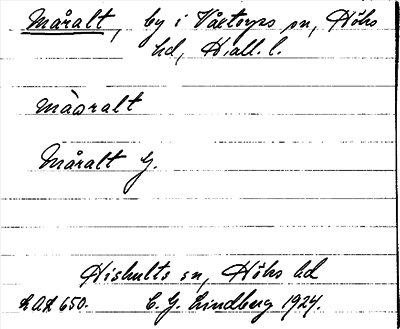 Måralt, by i Våxtorps sn, Höks
hd, Hall. l.
mȧ̀ɑralt
Måralt G.
Hishults sn, Höks hd
LAL 650. C. G. Lindberg 1924.